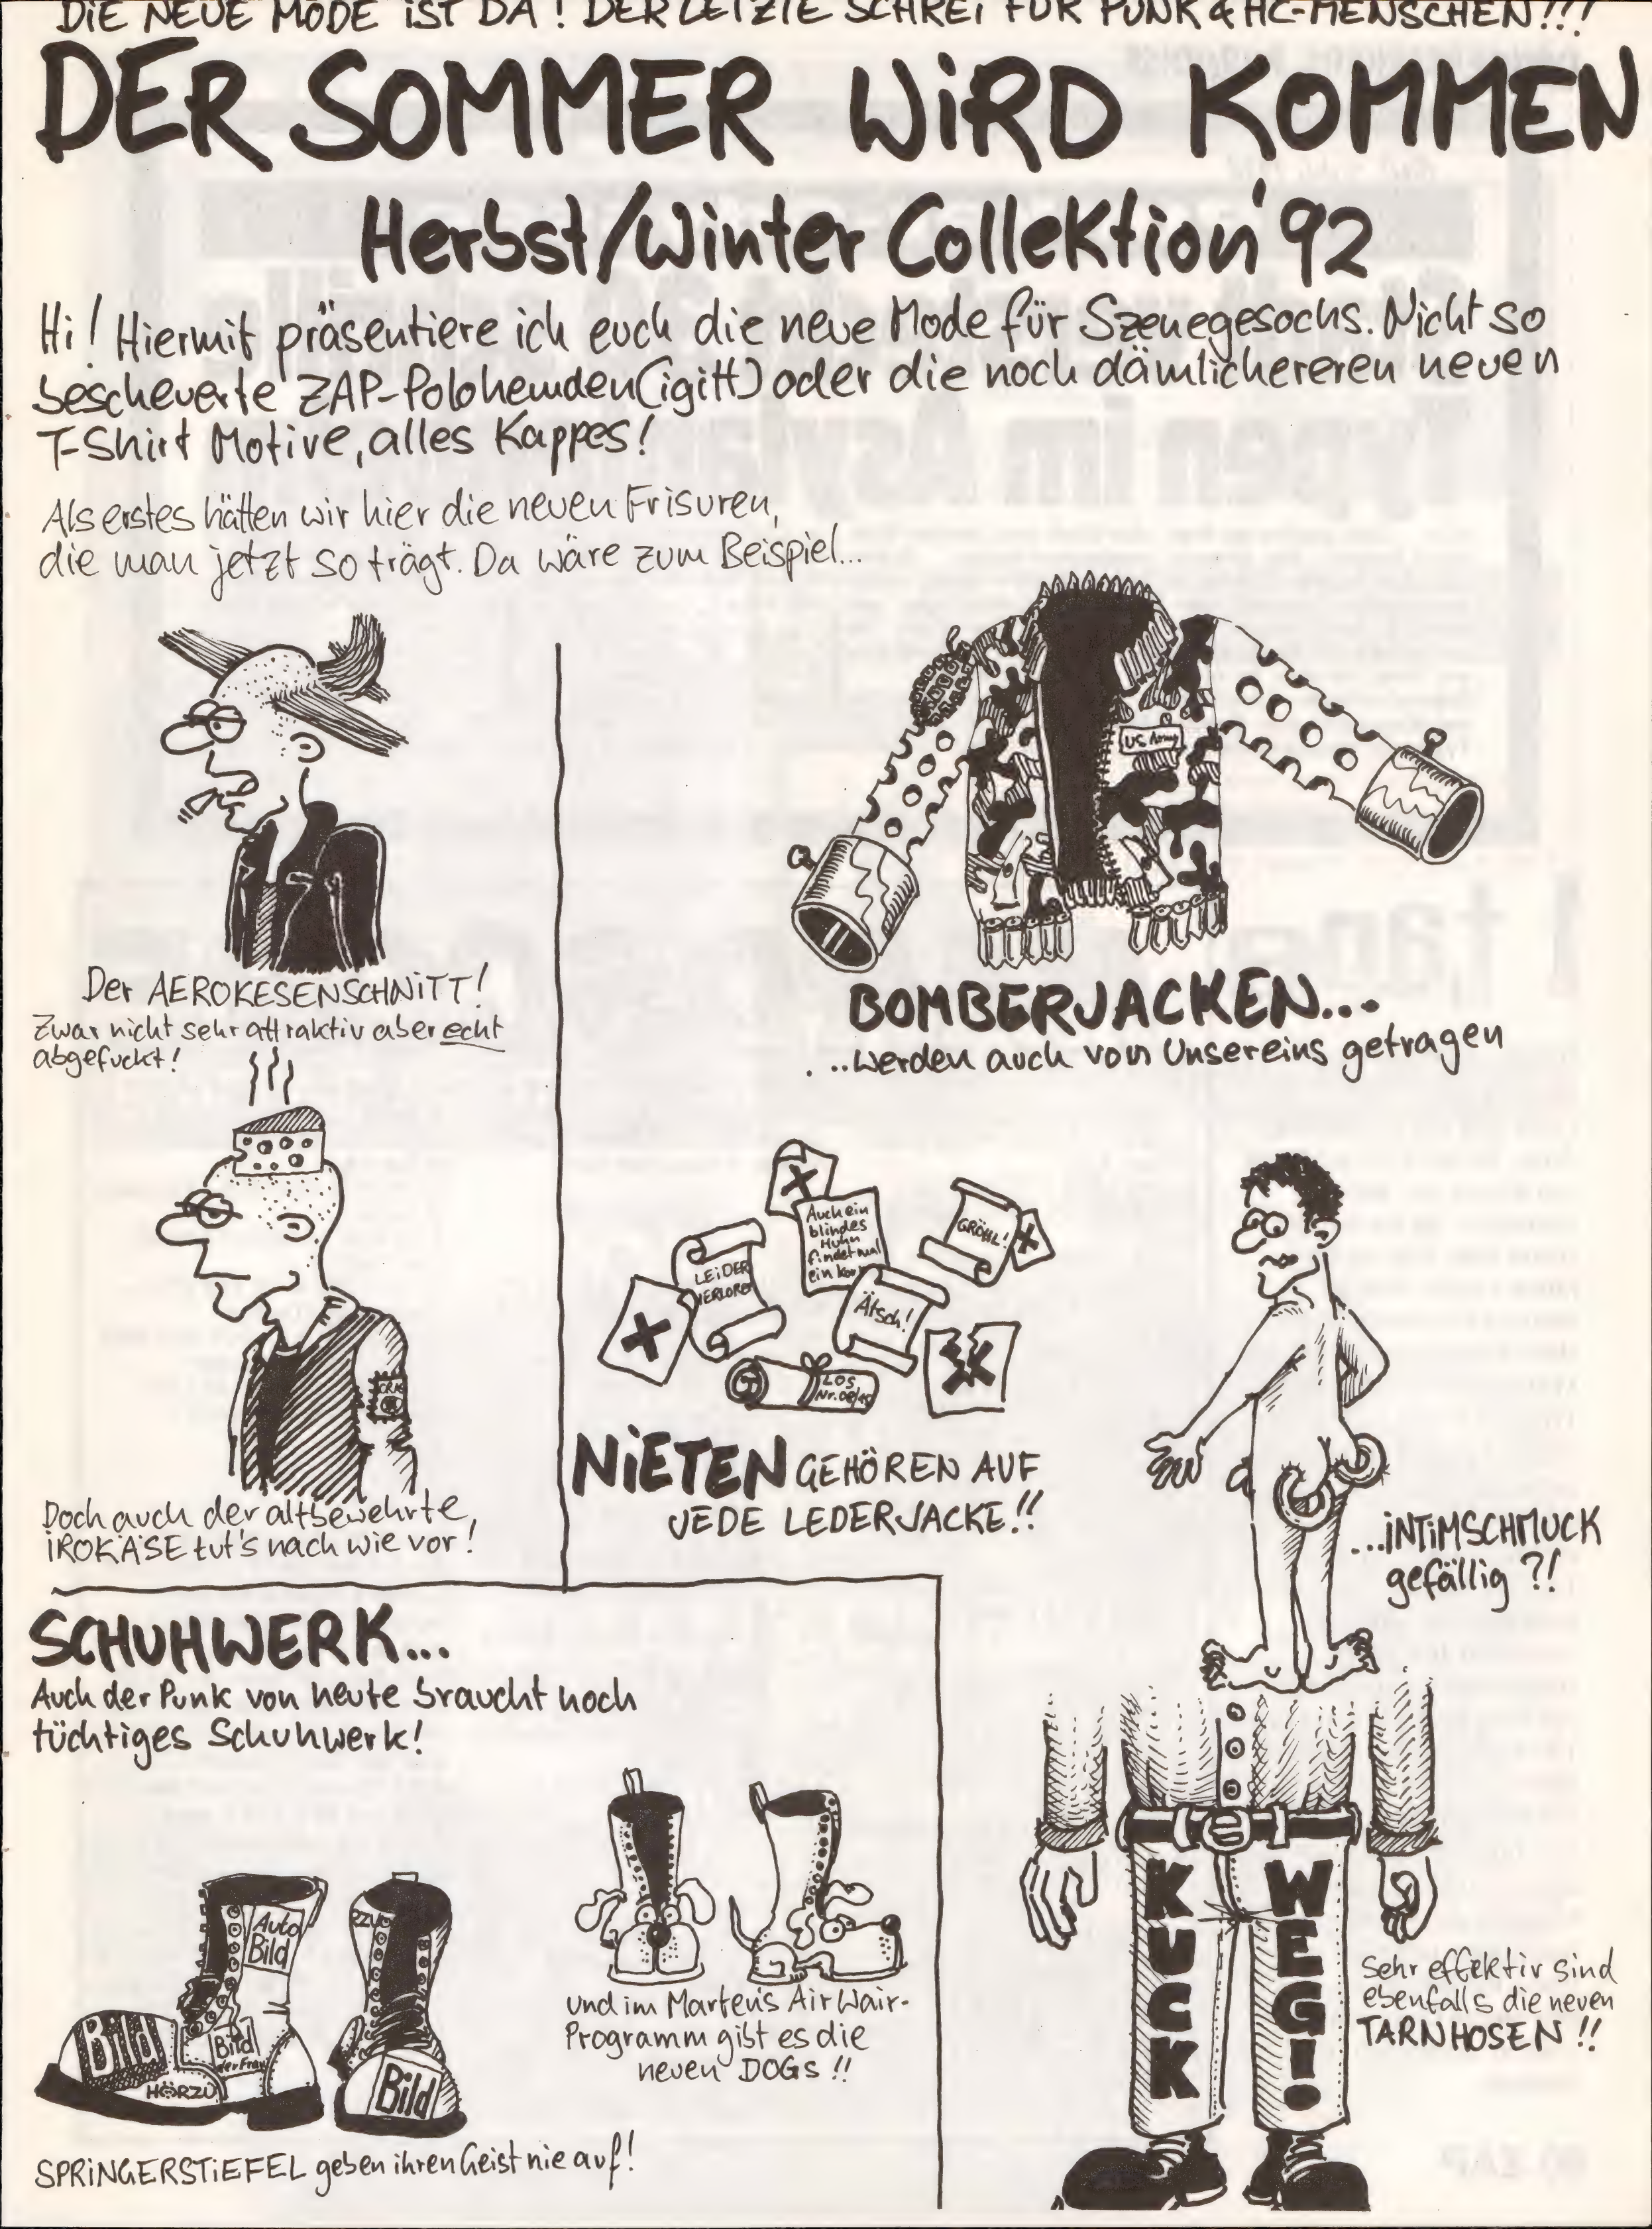 DIE NEUE MODE IST DA! DER LETZTE SCHREI FÜR PUNK & HC-MENSCHEN!!!
DER SOMMER WIRD KOMMEN
Herbst/Winter Collektion '92
Hi! Hiermit präsentiere ich euch die neue Mode für Szenegesocks. Nicht so
bescheuerte ZAP-Polohemden (igitt) oder die noch dämlichereren neuen
T-Shirt Motive, alles Kappes!
Als erstes hätten wir hier die neuen Frisuren,
die man jetzt so trägt. Da wäre zum Beispiel...
Der AEROKESENSCHNITT!
Zwar nicht sehr attraktiv aber echt
abgefuckt!
Doch auch der altbewehrte,
IROKÄSE tut's nach wie vor!
US Army
BOMBERJACKEN...
...werden auch von Unsereins getragen
Auch ein
blindes
Huhn
findet mal
ein Kor
GRÖHL!
LEIDER
VERLOREN
Ätsch!
LOS
Nr. 08/15
NIETEN GEHÖREN AUF
JEDE LEDERJACKE!!
...INTIMSCHMUCK
gefällig ?!
SCHUHWERK...
Auch der Punk von heute braucht noch
tüchtiges Schuhwerk!
Auto
Bild
Bild
Bild
der Frau
HÖRZU
RZU
Bild
SPRINGERSTIEFEL geben ihren Geist nie auf!
und im Marten's Air Wair-
Programm gibt es die
neuen DOGs !!
KUCK
WEG!
Sehr effektiv sind
ebenfalls die neuen
TARNHOSEN !!